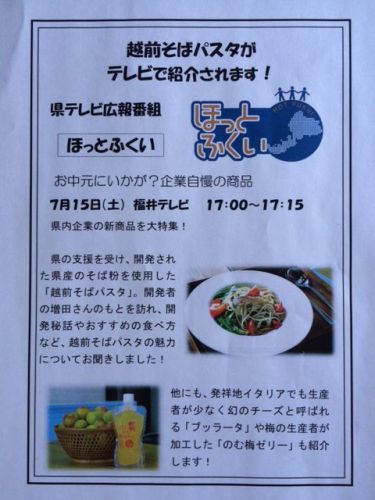 越前そばパスタが
テレビで紹介されます！
県テレビ広報番組
ほっとふくい
HOT FUKUI
ほっと
ふくい
お中元にいかが？企業自慢の商品
7月15日(土) 福井テレビ 17:00～17:15
県内企業の新商品を大特集！
県の支援を受け、開発され
た県産のそば粉を使用した
「越前そばパスタ」。開発者
の増田さんのもとを訪れ、開
発秘話やおすすめの食べ方
など、越前そばパスタの魅力
についてお聞きしました！
他にも、発祥地イタリアでも生産
者が少なく幻のチーズと呼ばれ
る「ブッラータ」や梅の生産者が
加工した「のむ梅ゼリー」も紹介
します！